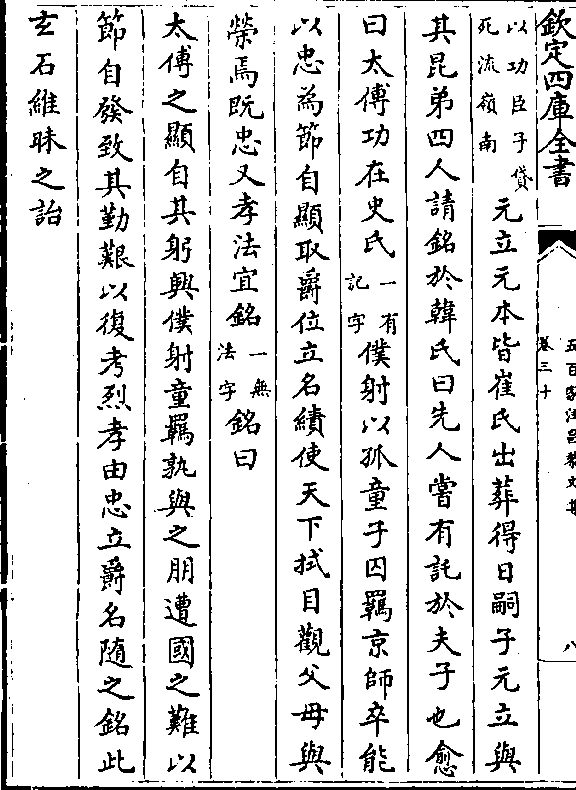 欽定四庫全書
五百家注昌黎文集
卷三十
八
以功臣子貸
死流嶺南
元立元本皆崔氏出葬得日嗣子元立與
其昆弟四人請銘於韓氏曰先人嘗有託於夫子也愈
曰太傅功在史氏一有記字僕射以孤童子囚羈京師卒能
以忠為節自顯取爵位立名績使天下拭目觀父母與
榮焉既忠又孝法宜銘一無法字銘曰
太傅之顯自其躬興僕射童羈孰與之朋遭國之難以
節自發致其勤艱以復考烈孝由忠立爵名随之銘此
玄石維昧之詒